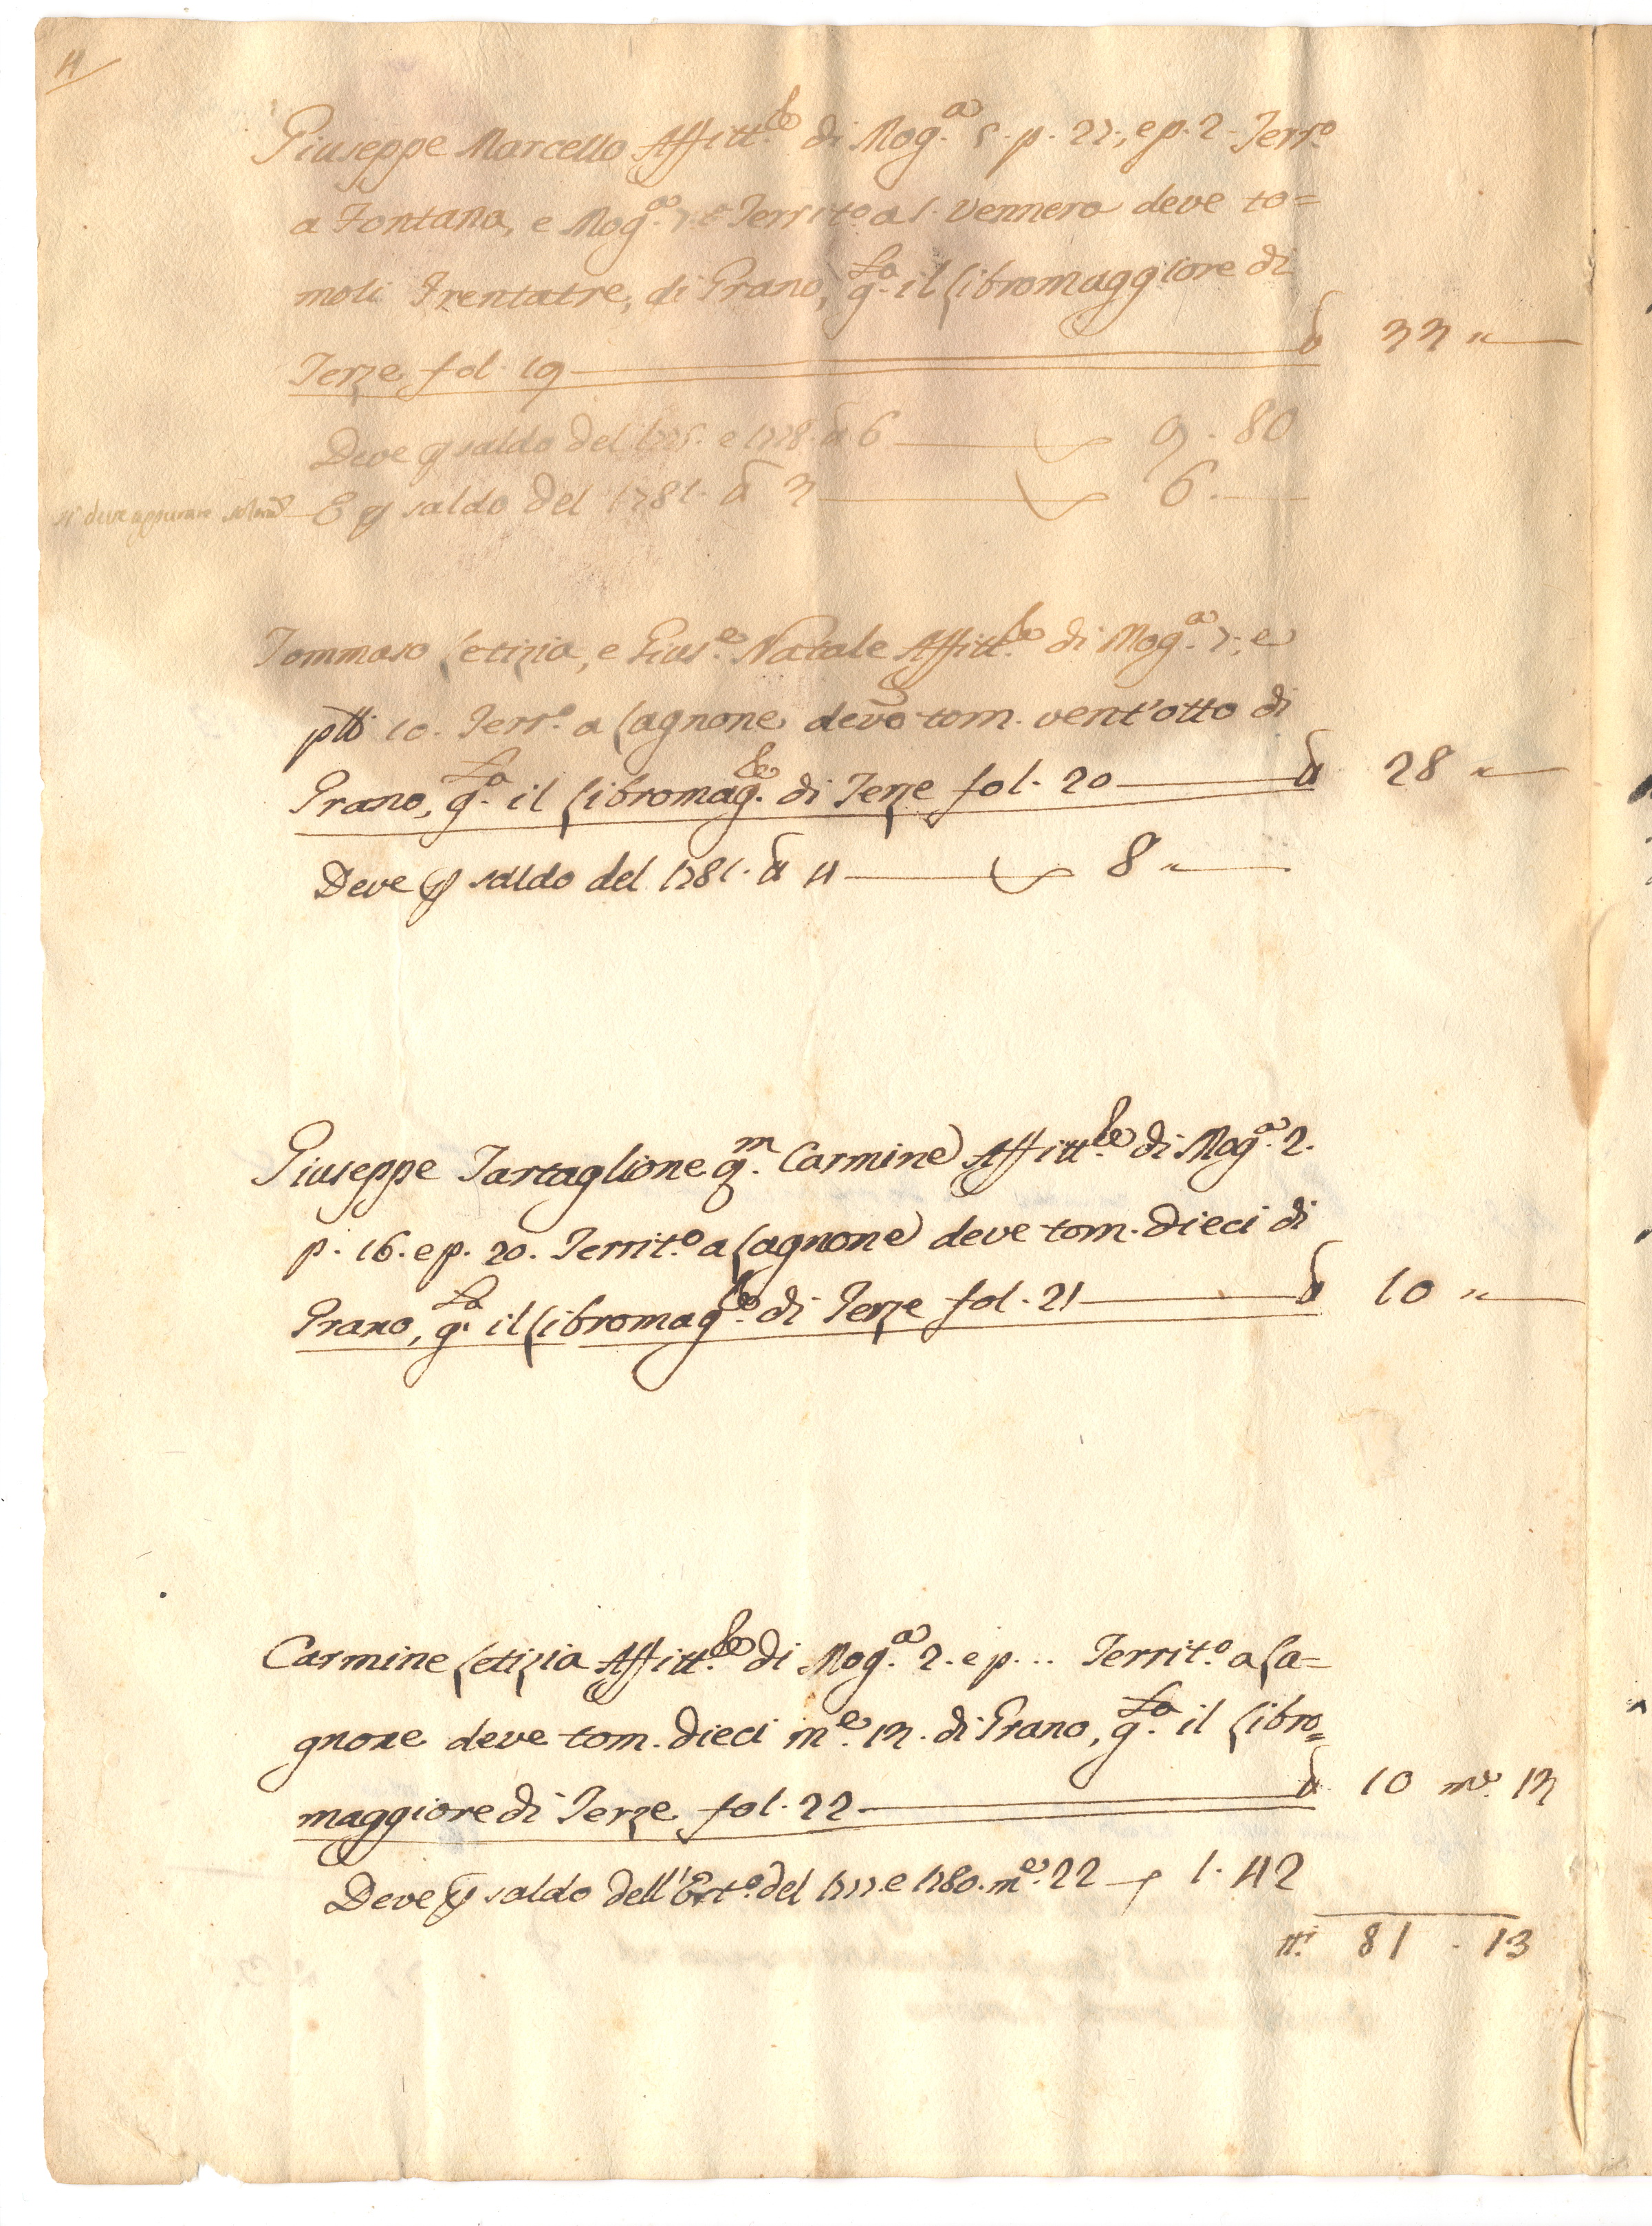 4
Giuseppe Marcello Affitt.re di Mog.a 5. p. 27; e p. 2. Terr.o
a Fontana, e Mog.a 7. Territ.o a S. Vennera deve to=
moli Trentatre, di Grano, g.fa il Libromaggiore di
Terze fol. 19 — tt 33 "
Deve per saldo del 1775. e 1778. tt 6 — 9. 80
si deve appurare E per saldo del 1781. tt 3 — 6. —
Tommaso Letizia, e Gius.e Natale Affitt.ri di Mog.a 7; e
p.ssi 10. Terr.o a Lagnone devo tom. vent'otto di
Grano, g.fa il Libromag.re di Terze fol. 20 — tt 28 "
Deve per saldo del 1781. tt 4 — 8 "
Giuseppe Tartaglione q.m Carmine Affitt.re di Mog.a 2.
p. 16. e p. 20. Territ.o a Lagnone deve tom. Dieci di
Grano, g.fa il Libromag.re di Terze fol. 21 — tt 10 "
Carmine Letizia Affitt.re di Mog.a 2. e p... Territ.o a La=
gnone deve tom. Dieci m.e 13. di Grano, g.fa il Libro=
maggiore di Terze fol. 22 — tt 10 m.e 13
Deve per saldo dell'Est.o del 1777. e 1780. m.e 22 — 1. 42
tt. 81 . 13